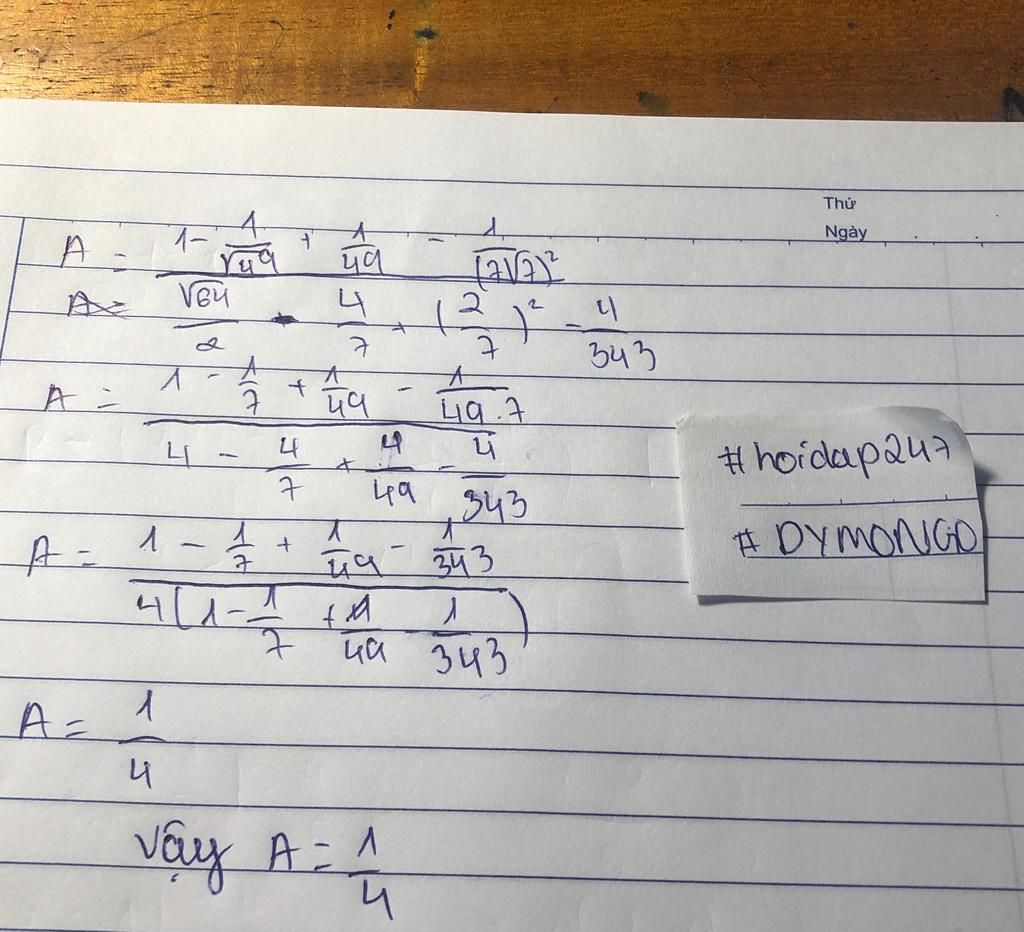 Thứ
Ngày
A = 1 - 1/√49 + 1/49 - 1/(7√7)²
A = √64/2 - 4/7 + (2/7)² - 4/343
A = 1 - 1/7 + 1/49 - 1/49.7
4 - 4/7 + 4/49 - 4/343
A = 1 - 1/7 + 1/49 - 1/343
4(1 - 1/7 + 1/49 - 1/343)
A = 1/4
Vậy A = 1/4
#hoidap247
#DYMONGD